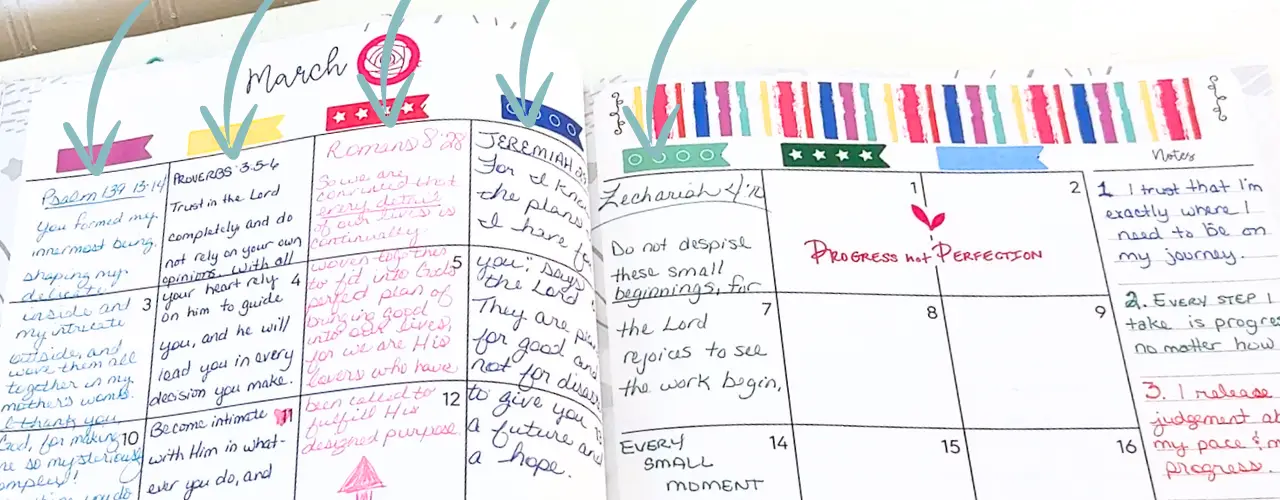 March
Psalm 139 13-14
you formed my
innermost being,
shaping my
delicate
inside and
my intricate
outside, and
wove them all
together in my
mother's womb.
I thank you,
God, for making
me so mysteriously
complex!
you do
3
10
PROVERBS 3:5-6
Trust in the Lord
completely and do
not rely on your own
opinions. with all
your heart rely
on him to guide
you, and he will
lead you in every
decision you make.
Become intimate
with Him in what-
ever you do, and
4
11
Romans 8:28
So we are
convinced that
every detail
of our lives is
continually
woven together
to fit into God's
perfect plan of
bringing good
into our lives,
for we are His
lovers who have
been called to
fulfill His
designed purpose.
5
12
JEREMIAH
For I know
the plans
I have for
you", says
the Lord
They are
for good and
not for
to give you
a future and
a hope.
Zechariah 4:10
Do not despise
these small
beginnings, for
the Lord
rejoices to see
the work begin,
7
EVERY
SMALL
MOMENT
14
1
2
PROGRESS not PERFECTION
8
9
15
16
Notes
1. I trust that I'm
exactly where I
need to be on
my journey.
2. EVERY STEP I
take is
no matter how
3. I release
judgement
my pace & my
progress.